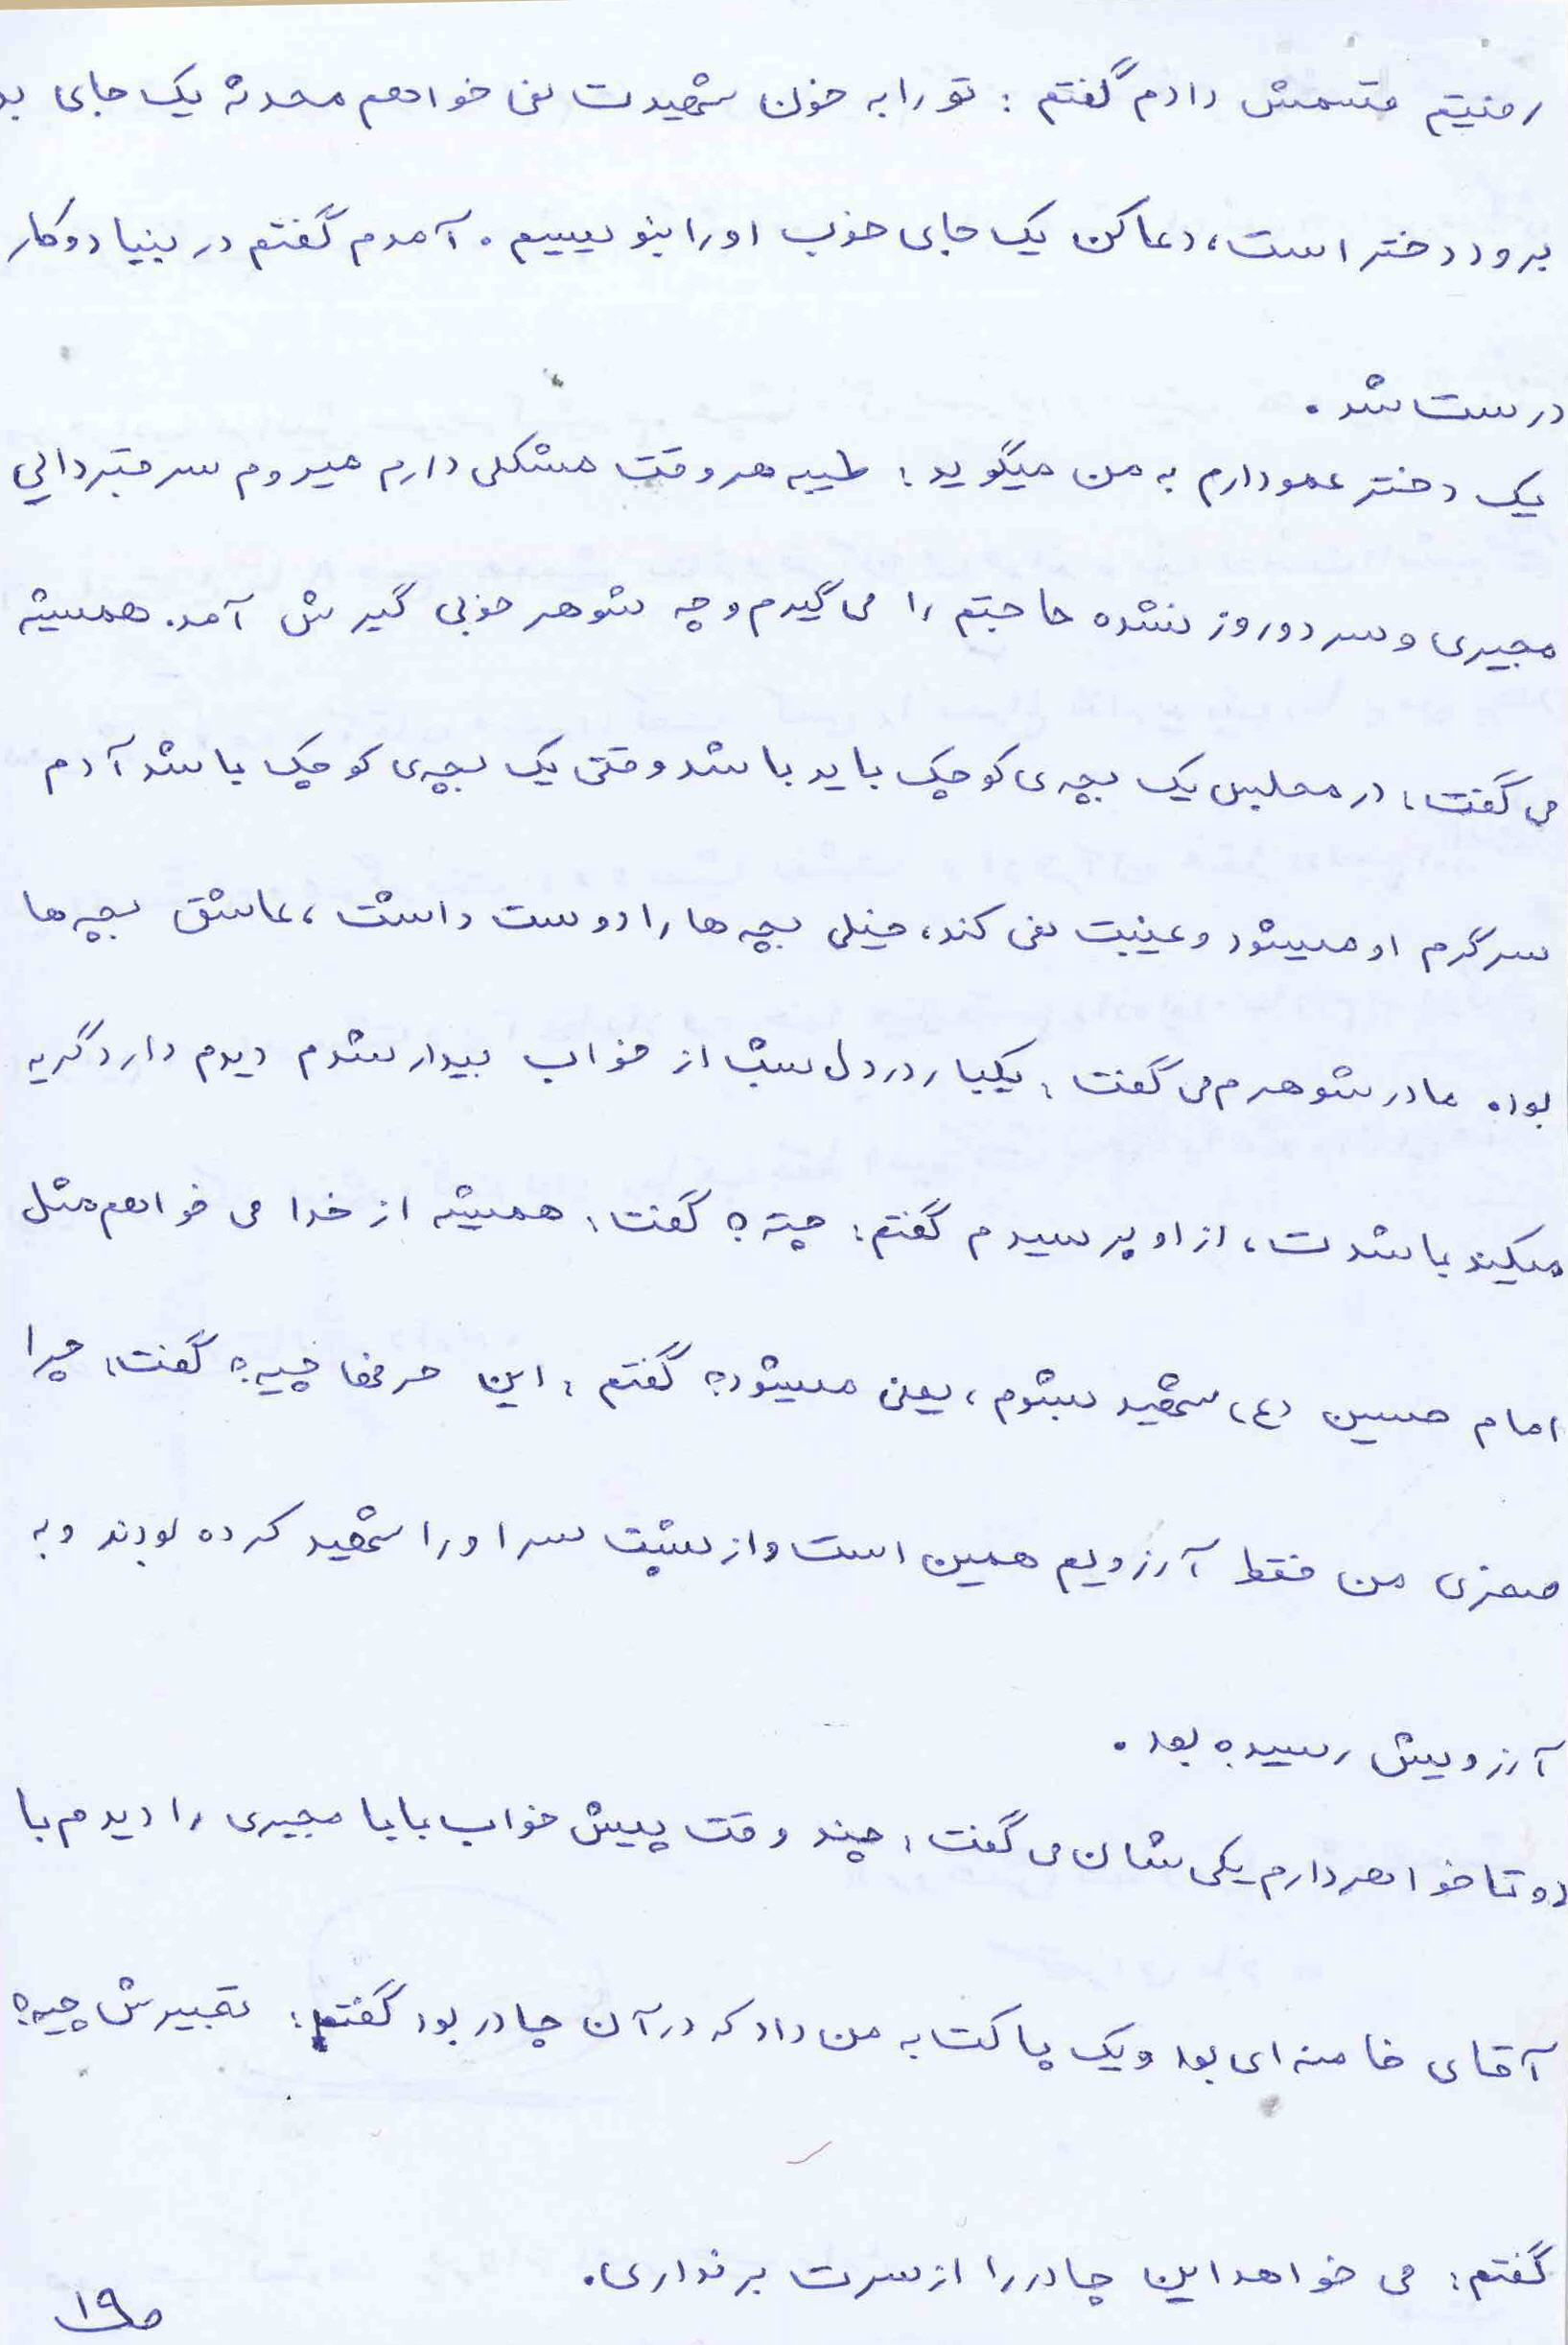 رفتیم قسمش دادم گفتم : تو را به خون شهیدت نمی خواهم محدثه یک جای بد
برود دختر است، دعا کن یک جای خوب او را بنویسیم . آمدم گفتم در بنیاد و کار
درست شد .
یک دختر عمو دارم به من میگوید : طیبه هر وقت مشکلی دارم میروم سر قبر دائی
مجیری و سر دو روز نشده حاجتم را می گیرم و چه شوهر خوبی گیرش آمد. همیشه
می گفت : در مجلس یک بچه ی کوچک باید باشد وقتی یک بچه ی کوچک باشد آدم
سرگرم او میشود و غیبت نمی کند، خیلی بچه ها را دوست داشت ، عاشق بچه ها
بود. مادر شوهرم می گفت : یکبار در دل شب از خواب بیدار شدم دیدم دارد گریه
میکند با شدت ، از او پرسیدم گفتم : چته ؟ گفت : همیشه از خدا می خواهم مثل
امام حسین (ع) شهید بشوم ، یعنی میشود؟ گفتم : این حرفها چیه؟ گفت: چرا
صغری من فقط آرزویم همین است و از پشت سر او را شهید کرده بودند و به
آرزویش رسیده بود .
دو تا خواهر دارم یکی شان می گفت : چند وقت پیش خواب بابا مجیری را دیدم با
آقای خامنه ای بود و یک پاکت به من داد که در آن چادر بود گفتم : تعبیرش چیه؟
گفتم : می خواهد این چادر را از سرت برنداری.
ص۱۹